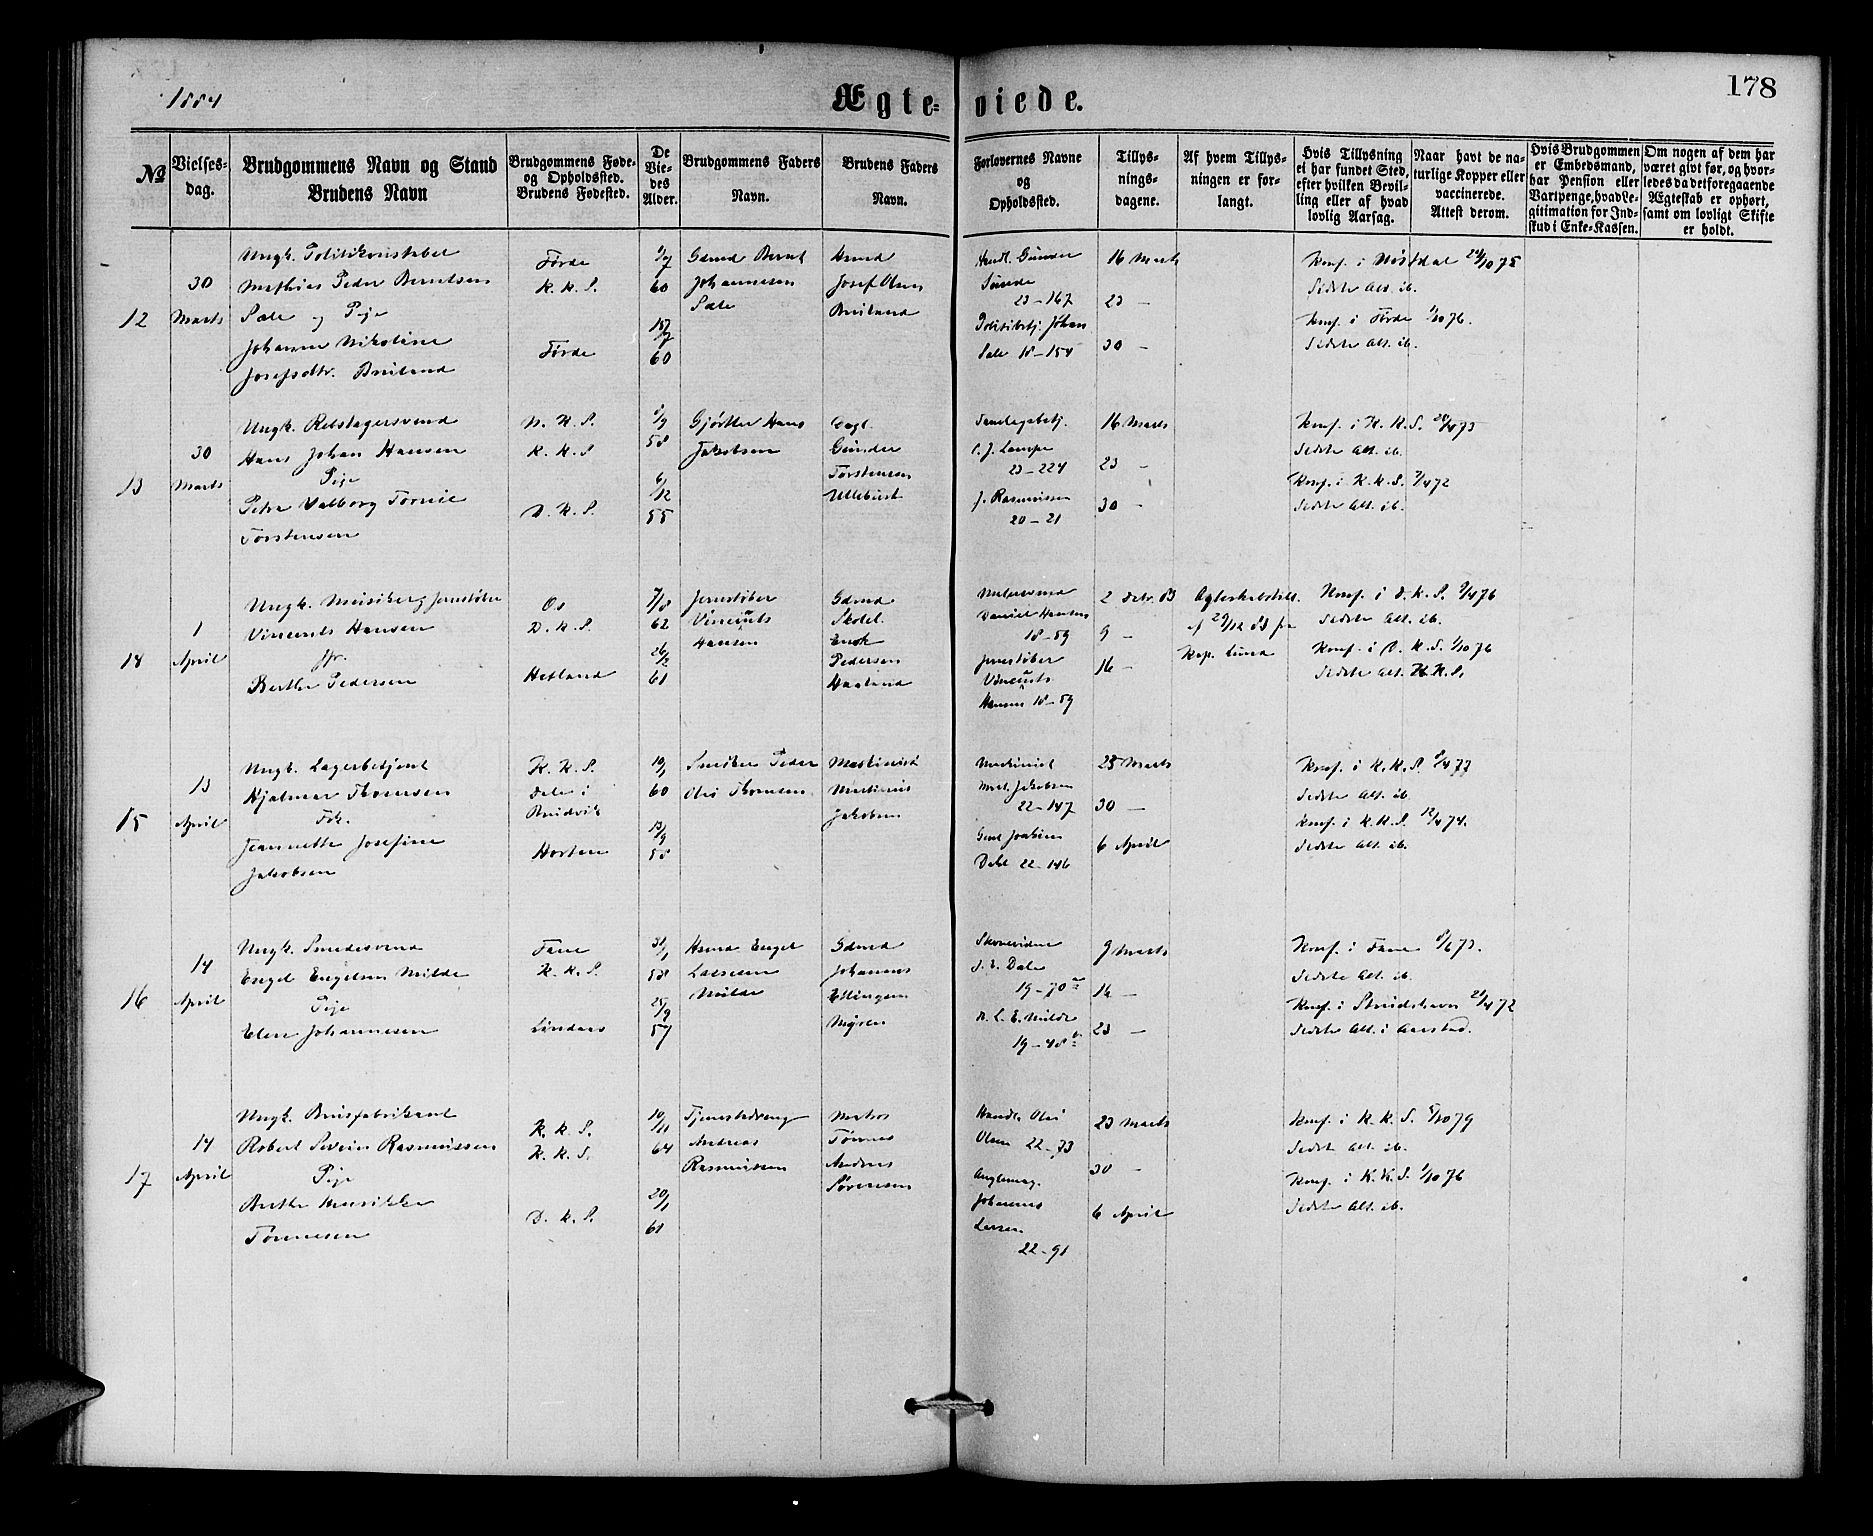 1884
Ægte-viede.
178
№
Vielses-
dag.
Brudgommens Navn og Stand
Brudens Navn
Brudgommens Føde-
og Opholdssted.
Brudens Fødested.
De
Vie-
des
Alder.
Brudgommens Faders
Navn.
Brudens Faders
Navn.
Forlovernes Navne
og
Opholdssted.
Tillys-
nings-
dagene.
Af hvem Tillys-
ningen er for-
langt.
Hvis Tillysning
ei har fundet Sted,
efter hvilken Bevil-
ling eller af hvad
lovlig Aarsag.
Naar havt de na-
turlige Kopper eller
vaccinerede.
Attest derom.
Hvis Brudgommen
er Embedsmand,
har Pension eller
Vartpenge, hvad Le-
gitimation for Ind-
skud i Enke-Kassen.
Om nogen af dem har
været givt før, og hvor-
ledes da det foregaaende
Ægteskab er ophørt,
samt om lovligt Skifte
er holdt.
12
30
Marts
Ungk. Politikonstabel
Mathias Peder Berntsen
Sæle og Pige
Johanne Nikoline
Josefsdtr. Bruland
Førde
K. K. S.
Førde
60
60
Gdmd Bernt
Johannesen
Sæle
Hmd
Josef Olsen
Bruland
Handl. Gunder
Sunde
23-167
Politibetj. Johan
Sæle 18-154
16 Marts
23 -
30 -
Konf. i 24/10 75
Sidste Alt. ib.
Konf. i Førde 1/10 76.
Sidste Alt. ib.
13
30
Marts
Ungk. Rebslagersvend
Hans Johan Hansen
Pige
Petra Valborg
Torstensen
N. K. S.
K. K. S
D. K. S.
58
6/12
55
Gjørtler Hans
Jakobsen
Gunder
Torstensen
23-224
J. Rasmussen
20-21
16 Marts
23 -
30 -
Sidste Alt. ib.
Konf. i K. K. S. 7/4 72
Sidste Alt. ib.
14
1
April
Ungk. Musiker og Jernstøber
Vincents Hansen
Jfr.
Berthe Pedersen
Os
D. K. S.
Hetland
7/8
62
26/2
61
Jernstøber
Vincents
Hansen
Gdmd
Enok
Pedersen
Haaland
Malersvend
Daniel Hansen
18-59
Jernstøber
Vincents
Hansen 18-59
9 -
16 -
29/12 83 fra
Kap. Lund
Konf. i D. K. S. 2/4 76
Sidste Alt. ib.
Konf. i D. K. S. 1/10 76
Sidste Alt. K. K. S.
15
13
April
Ungk. Lagerbetjent
Hjalmar Thomsen
Frk.
Jeannette Josefine
Jakobsen
K. K. S.
Dale i
Bruvik
Horten
10/1
60
13/9
58
Snedker Peder
Olai Thomsen
Maskinist
Martinius
Jakobsen
Maskinist
Mart. Jakobsen
22-147
Joakim
Dahl 22-146
23 Marts
30 -
6 April
Konf. i K. K. S.
Sidste Alt. ib
Konf. i K. K. S. 12/4 74.
Sidste Alt. ib.
16
14
April
Ungk. Smedesvend
Engel Engelsen Milde
Pige
Elen Johannesen
Fane
K. K. S.
Lindaas
31/1
58
25/9
57
Hmd Engel
Larsen
Milde
Gdmd
Johannes
Ellingsen
Mjøsen
J. E. Dale
19-70
L. E. Milde
19-48
9 Marts
16 -
23 -
Konf. i Fane
Sidste Alt. ib.
Konf. i 21/4 72
Sidste Alt. i Aarstad.
17
14
April
Ungk. Brusfabrikant
Robert Severin Rasmussen
Pige
Berthe Henrikke
Tønnesen
K. K. S.
K. K. S.
D. K. S.
10/11
64
20/1
61
Andreas
Rasmussen
Matros
Tønnes
Andreas
Sørensen
Handl. Olai
Olsen 22-73
Johannes
Larsen
22-91
23 Marts
30 -
6 April
Konf. i K. K. S. 5/10 79
Sidste Alt. ib.
Konf. i K. K. S. 1/10 76
Sidste Alt. ib.